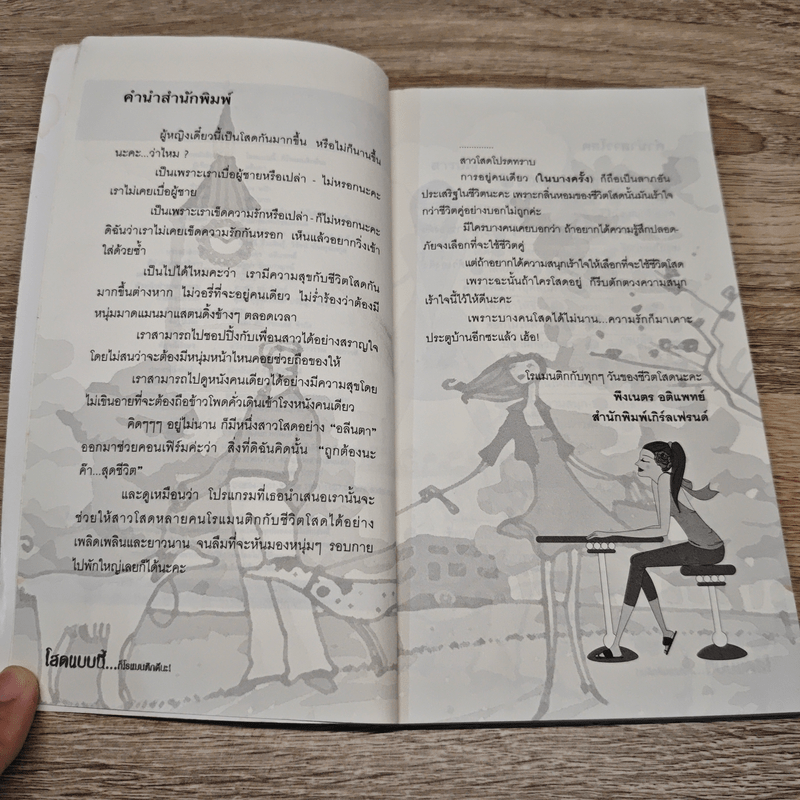 คำนำสำนักพิมพ์
ผู้หญิงเดี๋ยวนี้เป็นโสดกันมากขึ้น หรือไม่ก็นานขึ้น
นะคะ...ว่าไหม ?
เป็นเพราะเราเบื่อผู้ชายหรือเปล่า - ไม่หรอกนะคะ
เราไม่เคยเบื่อผู้ชาย
เป็นเพราะเราเข็ดความรักหรือเปล่า - ก็ไม่หรอกนะคะ
ดิฉันว่าเราไม่เคยเข็ดความรักกันหรอก เห็นแล้วอยากวิ่งเข้า
ใส่ด้วยซ้ำ
เป็นไปได้ไหมคะว่า เรามีความสุขกับชีวิตโสดกัน
มากขึ้นต่างหาก ไม่วอรี่ที่จะอยู่คนเดียว ไม่ร่ำร้องว่าต้องมี
หนุ่มมาดแมนมาแสตนดิ้งข้างๆ ตลอดเวลา
เราสามารถไปชอปปิ้งกับเพื่อนสาวได้อย่างสราญใจ
โดยไม่สนว่าจะต้องมีหนุ่มหน้าไหนคอยช่วยถือของให้
เราสามารถไปดูหนังคนเดียวได้อย่างมีความสุขโดย
ไม่เขินอายที่จะต้องถือข้าวโพดคั่วเดินเข้าโรงหนังคนเดียว
คิดๆๆๆ อยู่ไม่นาน ก็มีหนึ่งสาวโสดอย่าง “อลีนตา”
ออกมาช่วยคอนเฟิร์มค่ะว่า สิ่งที่ดิฉันคิดนั้น “ถูกต้องนะ
ค๊า...สุดชีวิต”
และดูเหมือนว่า โปรแกรมที่เธอนำเสนอเรานั้นจะ
ช่วยให้สาวโสดหลายคนโรแมนติกกับชีวิตโสดได้อย่าง
เพลิดเพลินและยาวนาน จนลืมที่จะหันมองหนุ่มๆ รอบกาย
ไปพักใหญ่เลยก็ได้นะคะ
โสดแบบนี้...ก็โรแมนติกดีนะ!
.............
สาวโสดโปรดทราบ
การอยู่คนเดียว (ในบางครั้ง) ก็ถือเป็นลาภอัน
ประเสริฐในชีวิตนะคะ เพราะกลิ่นหอมของชีวิตโสดนั้นมันเร้าใจ
กว่าชีวิตคู่อย่างบอกไม่ถูกค่ะ
มีใครบางคนเคยบอกว่า ถ้าอยากได้ความรู้สึกปลอด-
ภัยจงเลือกที่จะใช้ชีวิตคู่
แต่ถ้าอยากได้ความสนุกเร้าใจให้เลือกที่จะใช้ชีวิตโสด
เพราะฉะนั้นถ้าใครโสดอยู่ ก็รีบตักตวงความสนุก
เร้าใจนี้ไว้ให้ดีนะคะ
เพราะบางคนโสดได้ไม่นาน...ความรักก็มาเคาะ
ประตูบ้านอีกซะแล้ว เฮ้อ!
โรแมนติกกับทุกๆ วันของชีวิตโสดนะคะ
พึงเนตร อติแพทย์
สำนักพิมพ์เกิร์ลเฟรนด์